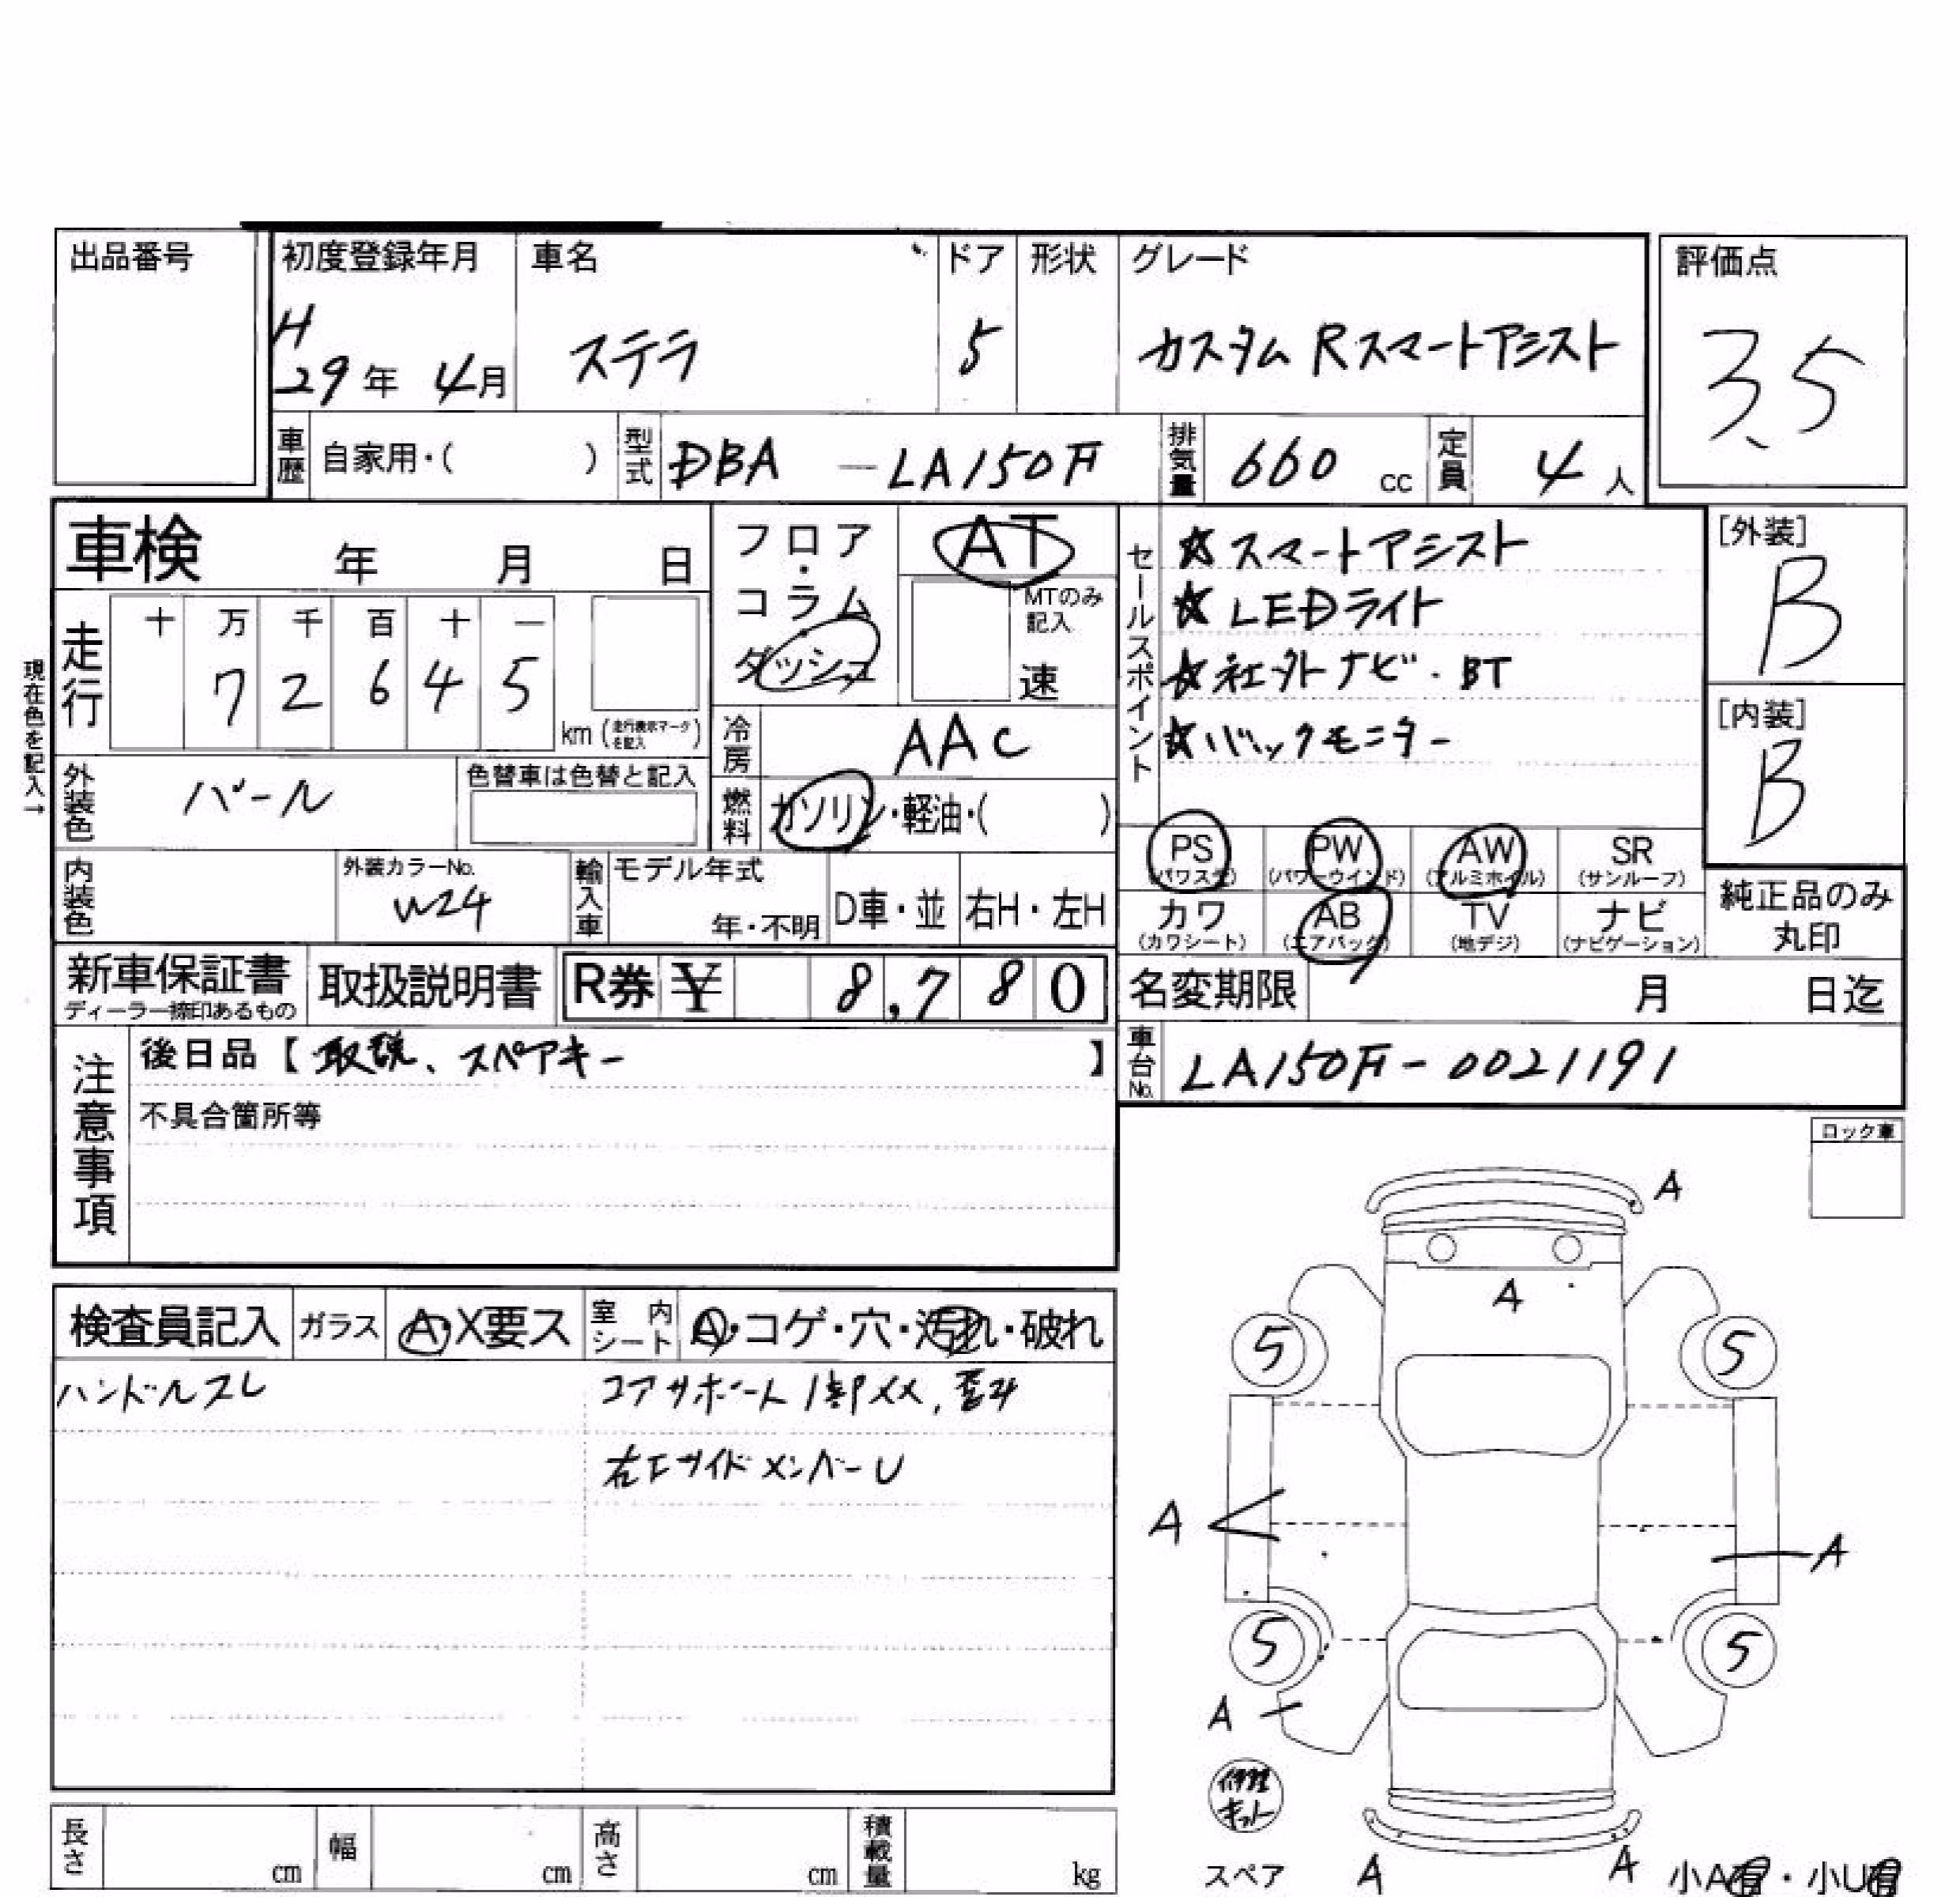 出品番号
初度登録年月 車名 ドア 形状 グレード 評価点
H
29年 4月 ステラ 5 カスタム Rスマートアシスト 3.5
車歴 自家用・( ) 型式 DBA -LA150F 排気量 660 cc 定員 4 人
車検 年 月 日
フロア・コラム・ダッシュ AT
MTのみ記入 速
現在色を記入→
走行 十 万 千 百 十 一
7 2 6 4 5 km (走行表示マークを記入)
冷房 AAC
外装色 パール 色替車は色替と記入
燃料 ガソリン・軽油・( )
内装色 外装カラーNo. W24 輸入車 モデル年式 年・不明 D車・並 右H・左H
セールスポイント
☆スマートアシスト
☆LEDライト
☆社外ナビ・BT
☆バックモニター
[外装] B
[内装] B
PS (パワステ) PW (パワーウインド) AW (アルミホイル) SR (サンルーフ)
カワ (カワシート) AB (エアバック) TV (地デジ) ナビ (ナビゲーション)
純正品のみ丸印
新車保証書 ディーラー捺印あるもの 取扱説明書 R券 ¥ 8,780
名変期限 月 日迄
車台No. LA150F-0021191
注意事項
後日品【取説、スペアキー 】
不具合箇所等
ロック車
検査員記入 ガラス A・X要ス 室内シート A・コゲ・穴・汚れ・破れ
ハンドルスレ コアサポート1部XX,歪み
右Fサイドメンバー U
A
A
5 5
A A
5 5
A
修理キット
スペア A A 小A有・小U有
長さ cm 幅 cm 高さ cm 積載量 kg